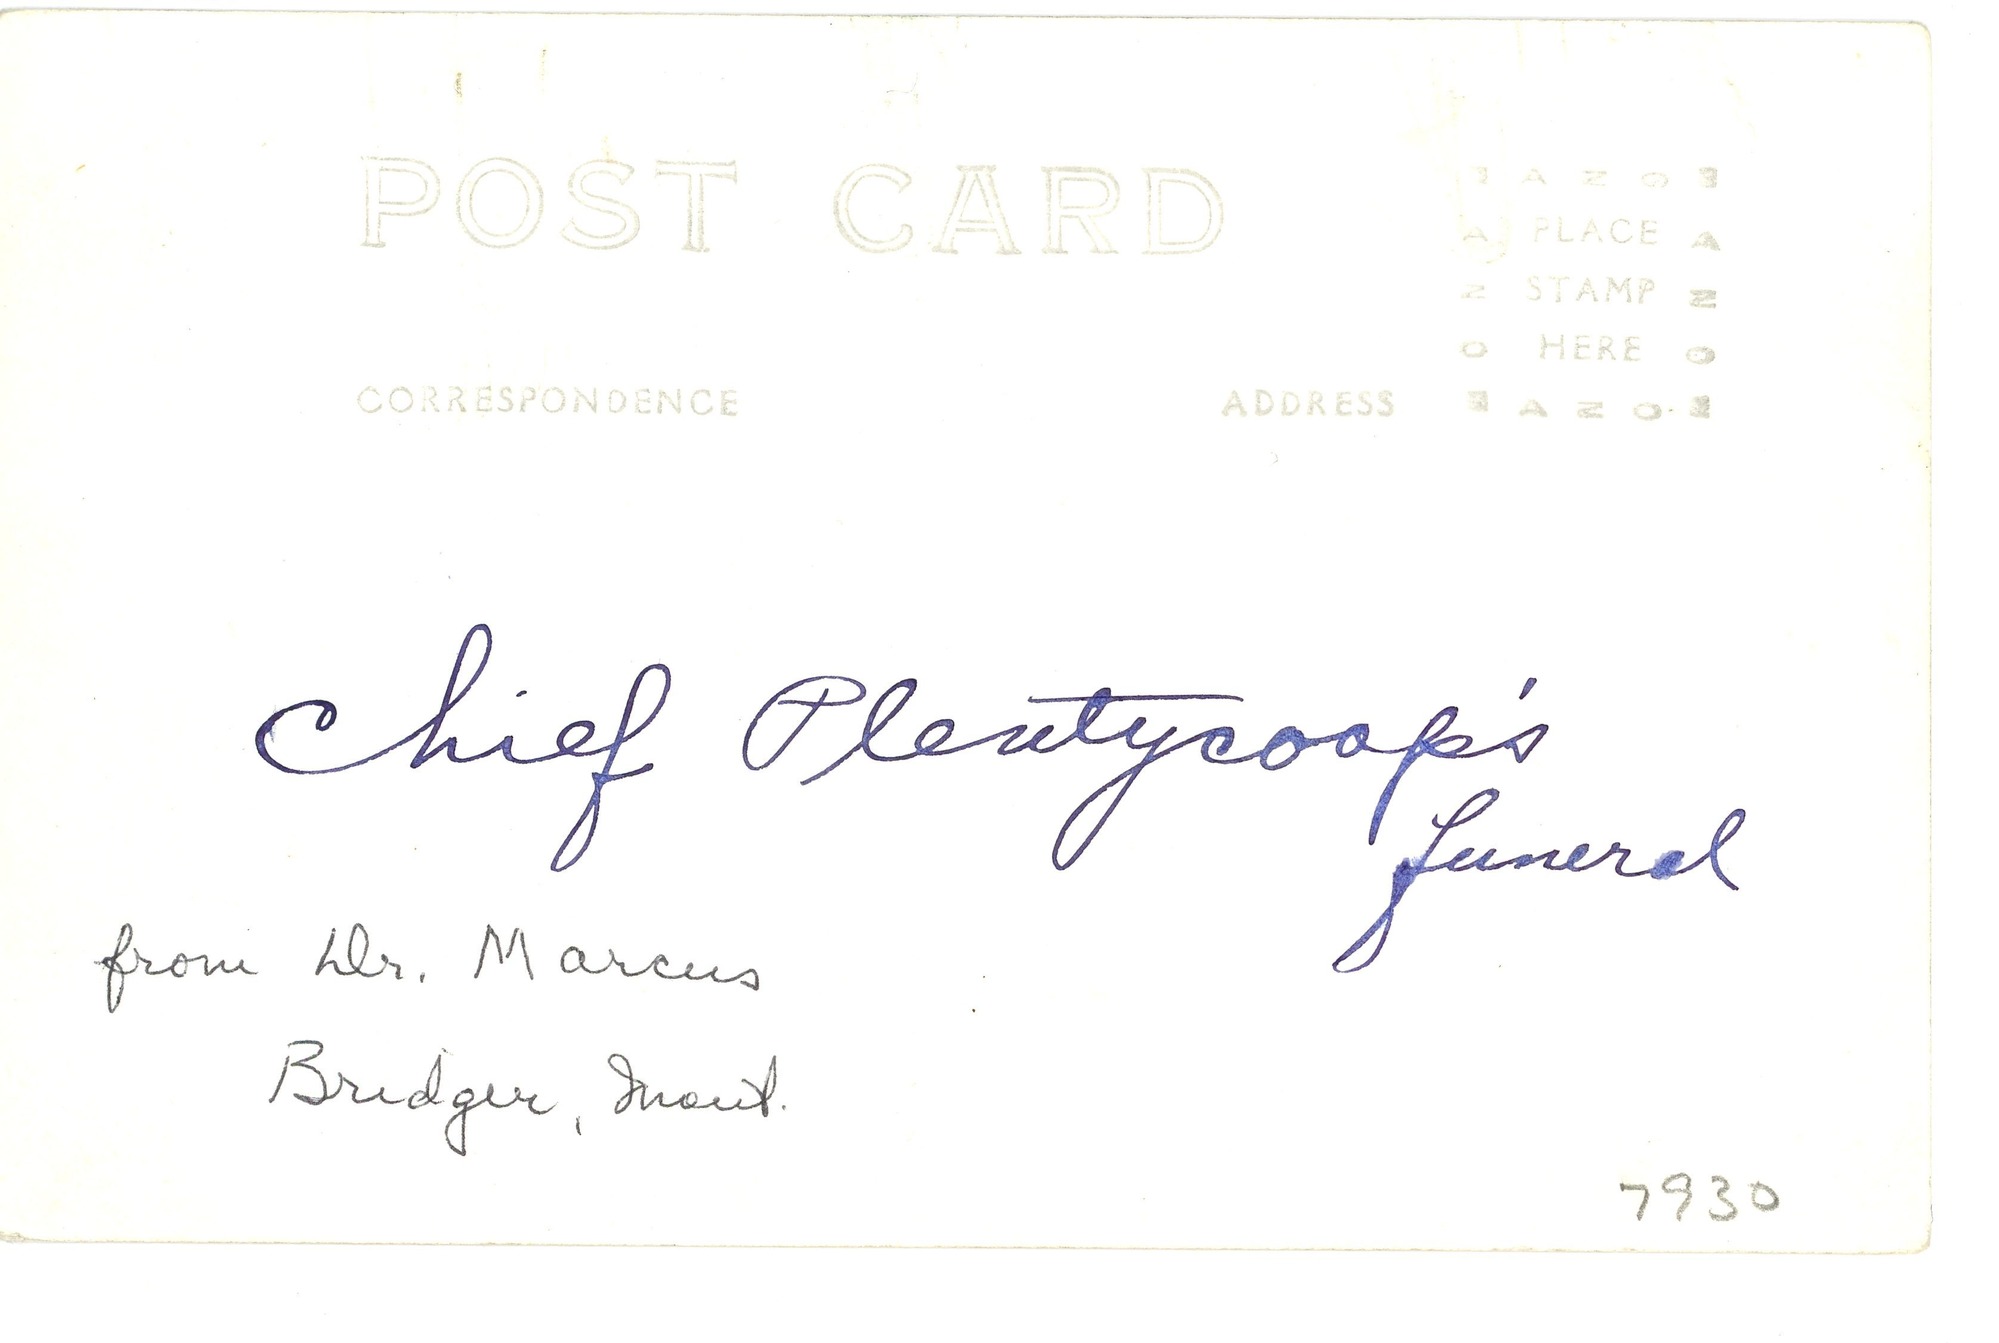 POST CARD
E A N O E
A PLACE A
N STAMP N
O HERE O
E A N O E
CORRESPONDENCE ADDRESS
Chief Plentycoop's
funeral
from Dr. Marcus
Bridger, Mont.
7930